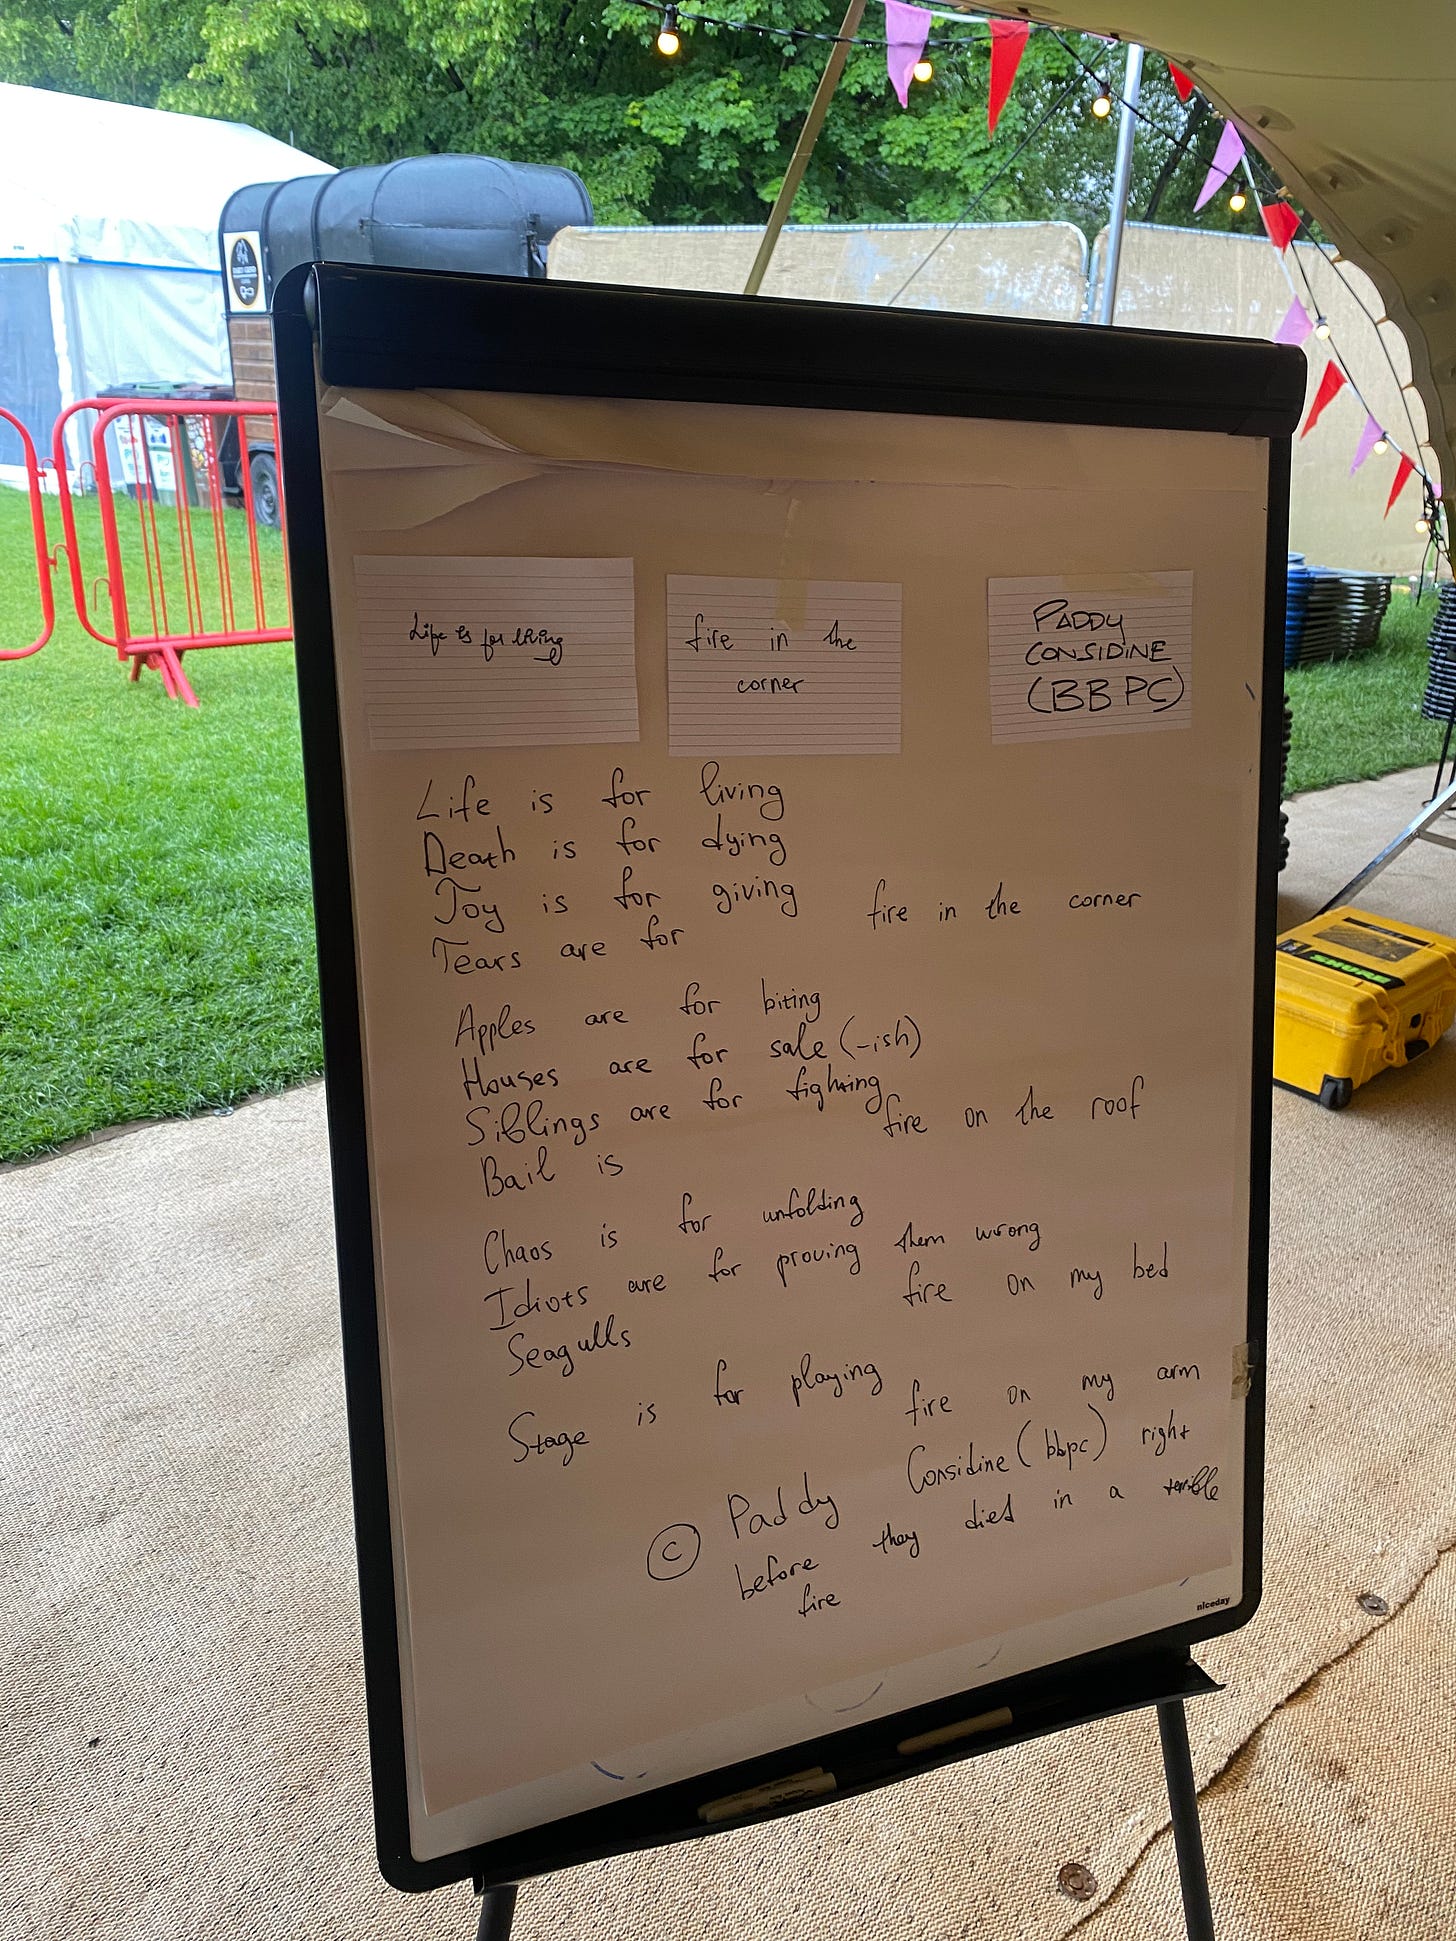 Life is for living
fire in the
corner
PADDY
CONSIDINE
(BBPC)
Life is for living
Death is for dying
Joy is for giving
Tears are for fire in the corner
Apples are for biting
Houses are for sale (-ish)
Siblings are for fighting
Bail is fire on the roof
Chaos is for unfolding
Idiots are for proving them wrong
Seagulls fire on my bed
Stage is for playing
fire on my arm
© Paddy Considine (bbpc) right
before they died in a terrible
fire
niceday
SHURE